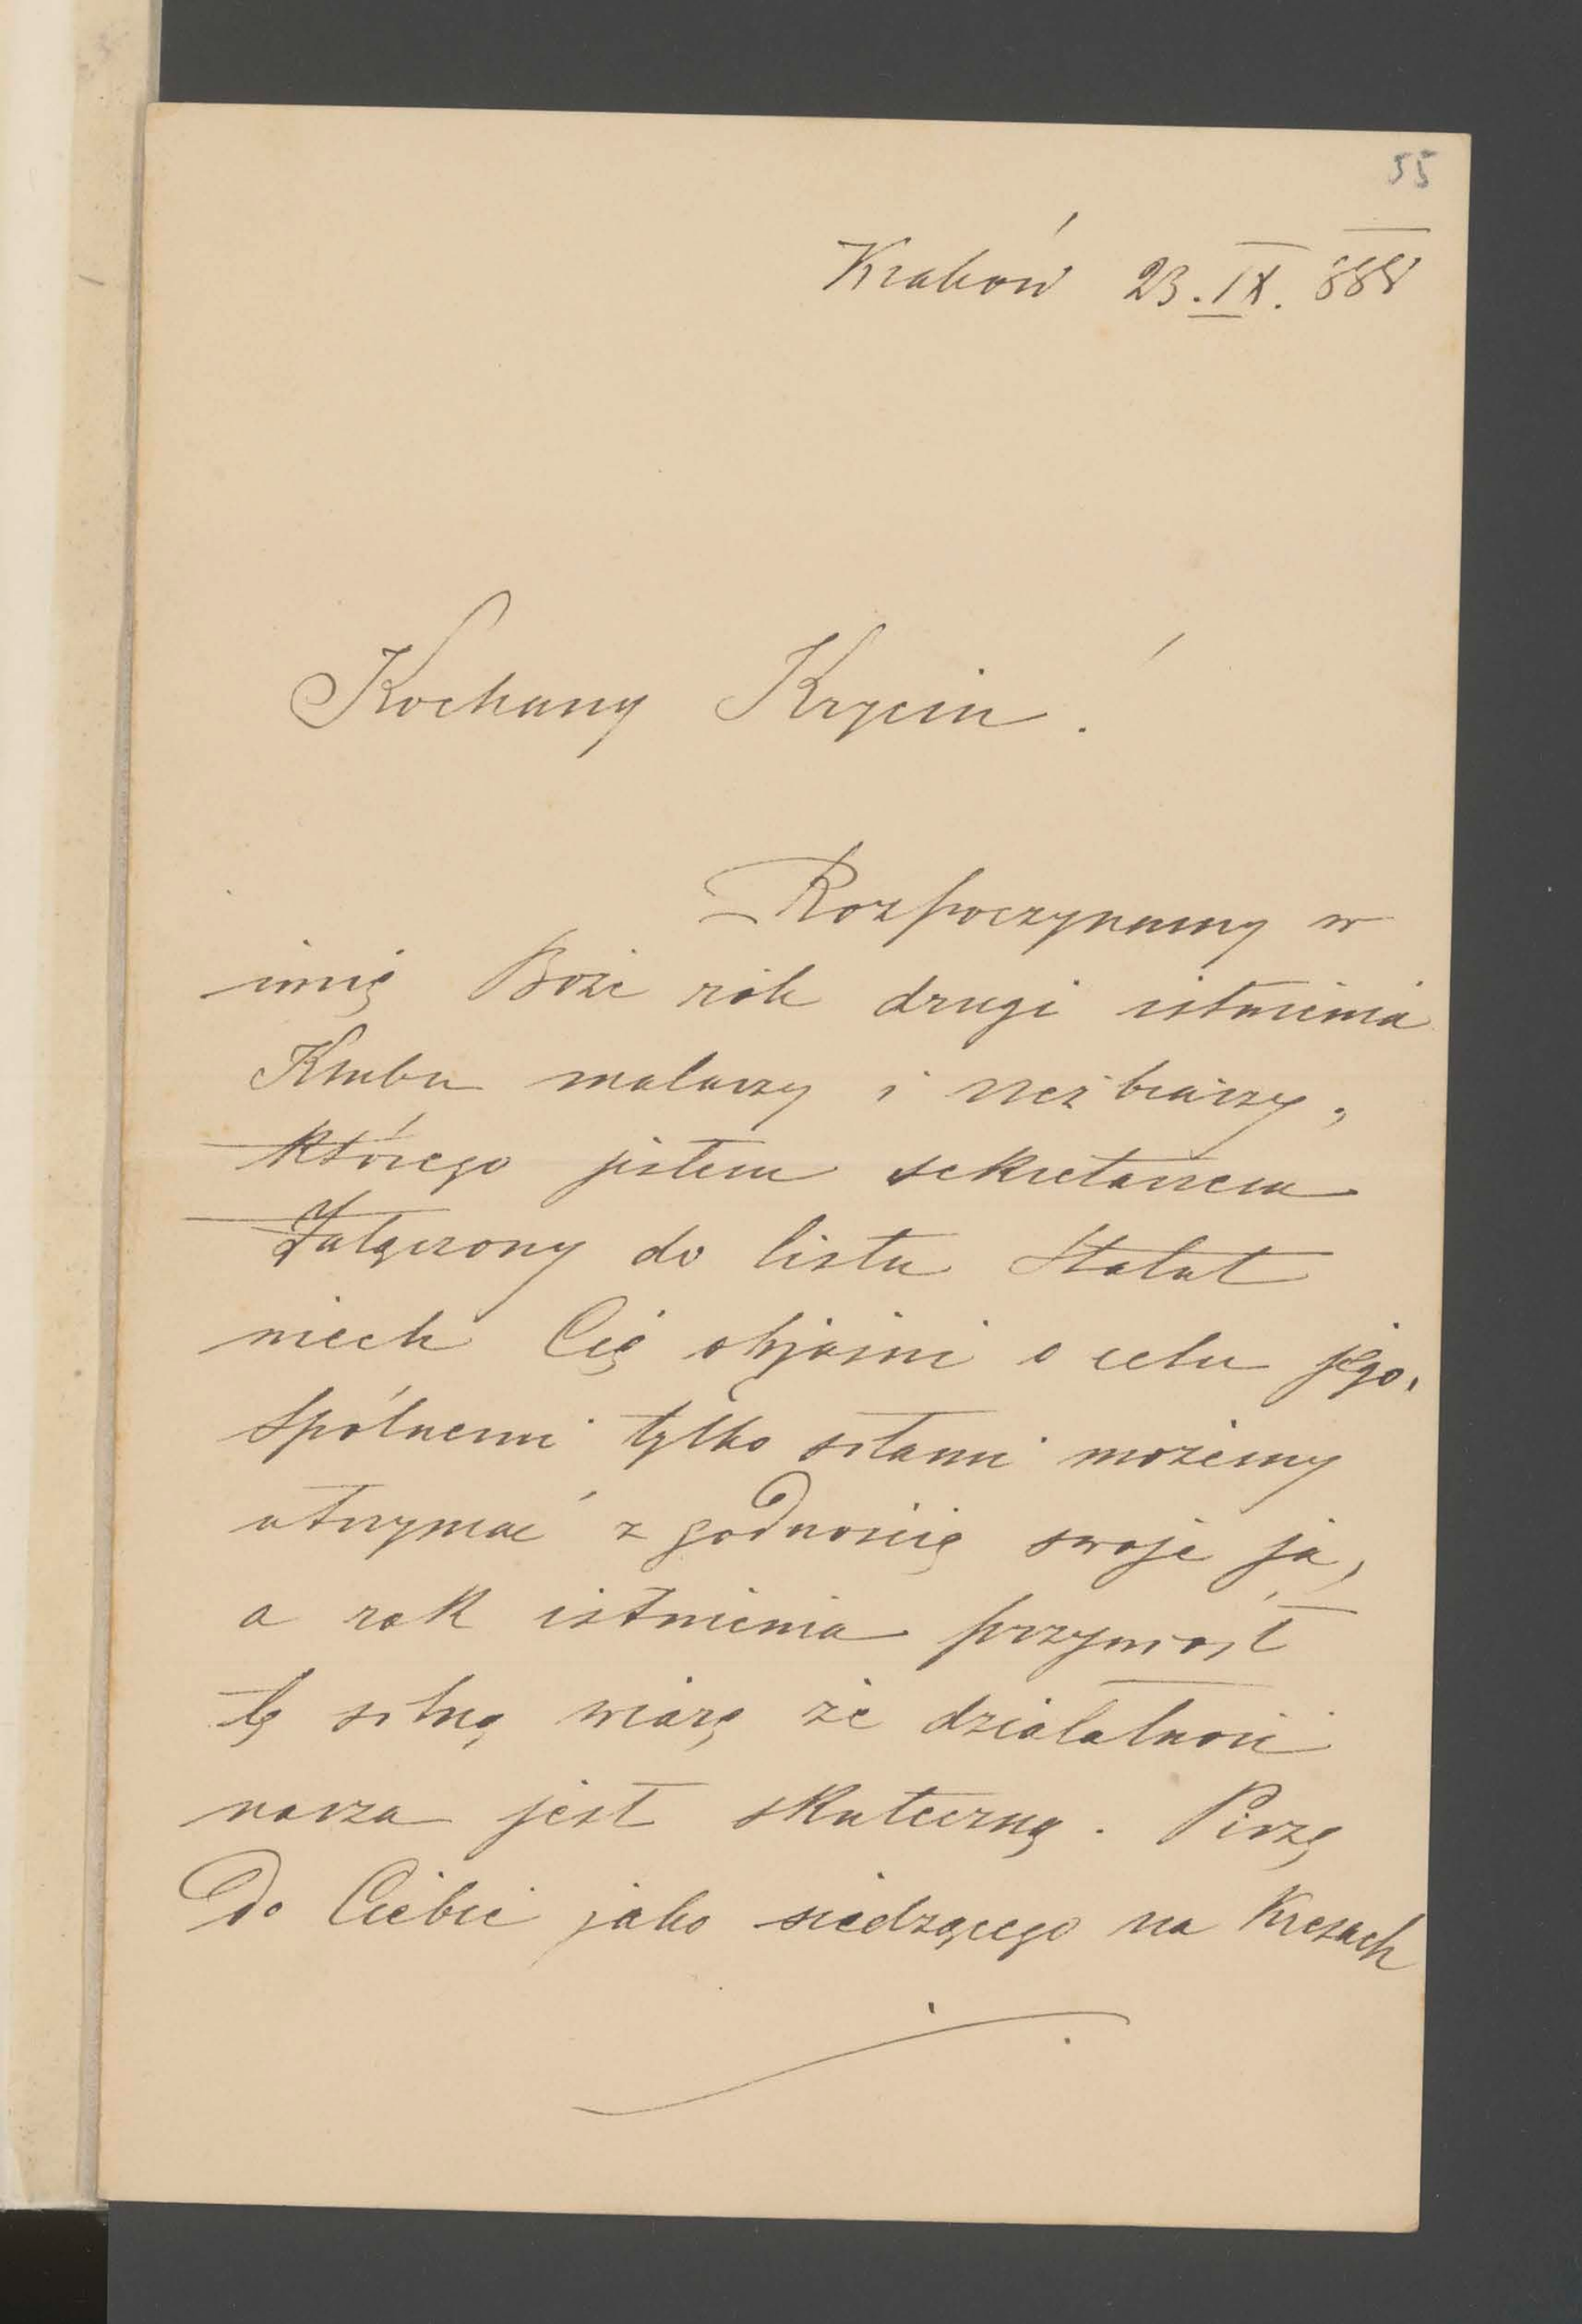 55
Kraków 23.IX. 888
Kochany Krycin!
Rozpoczynamy w
imię Boże rok drugi istnienia
Klubu malarzy i rzeźbiarzy,
którego jestem sekretarzem
Załączony do listu Statut
niech Cię objaśni o celu jego.
Spólnemi tylko siłami możemy
utrzymać z godnością swoje ja,
a rok istnienia przyniósł
tę silną wiarę że działalność
nasza jest skuteczną. Piszę
do Ciebie jako siedzącego na Kresach